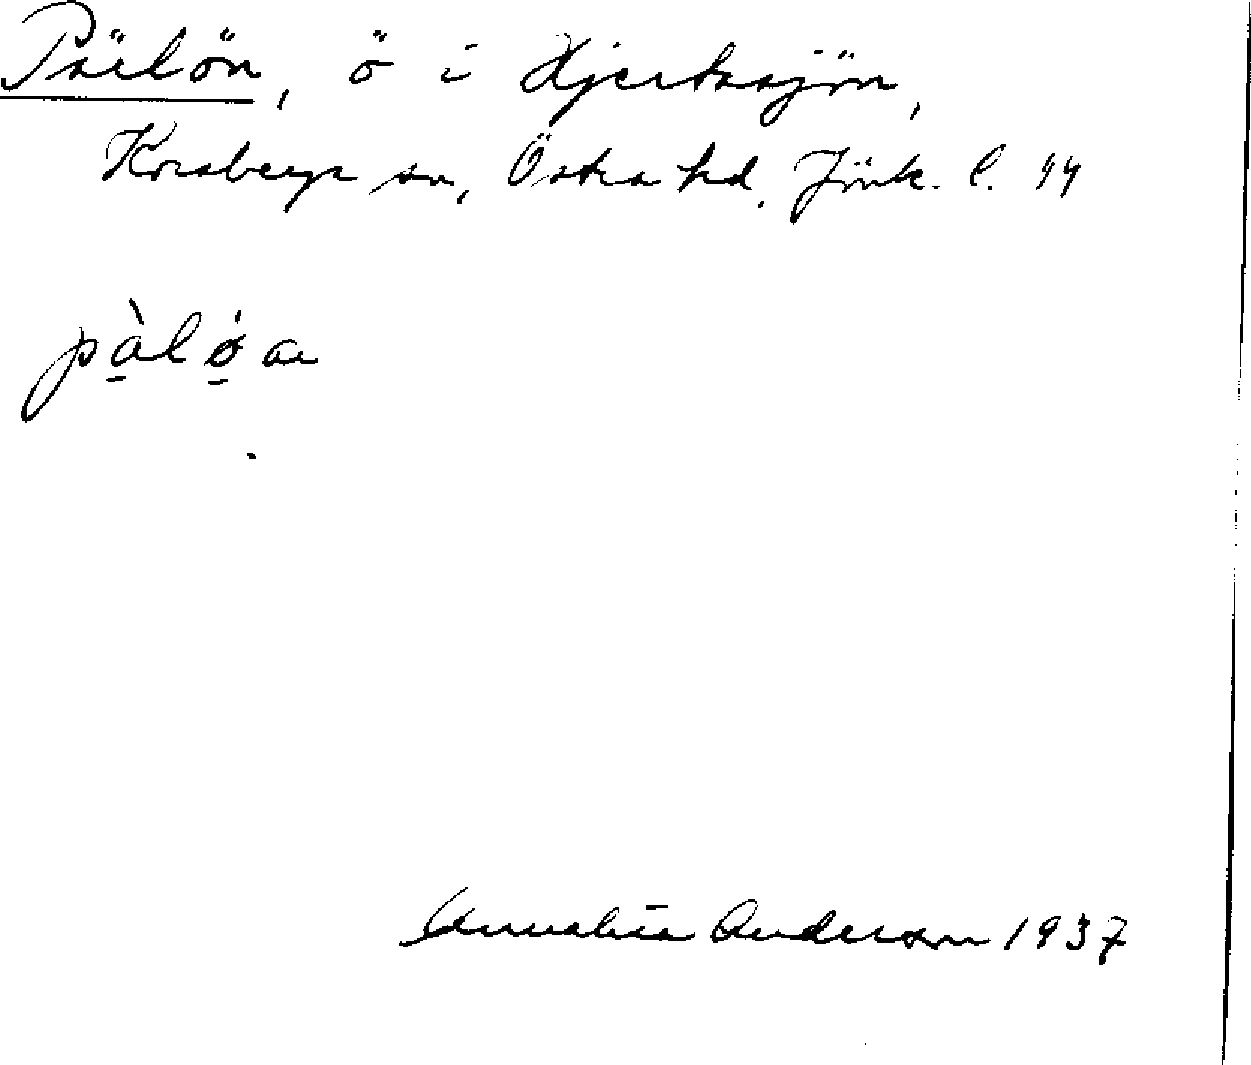 Pälön, ö i Hjertasjön,
Korsberga sn, Östra hd, Jönk. l. 44
pàlǿa
Andersson 1937